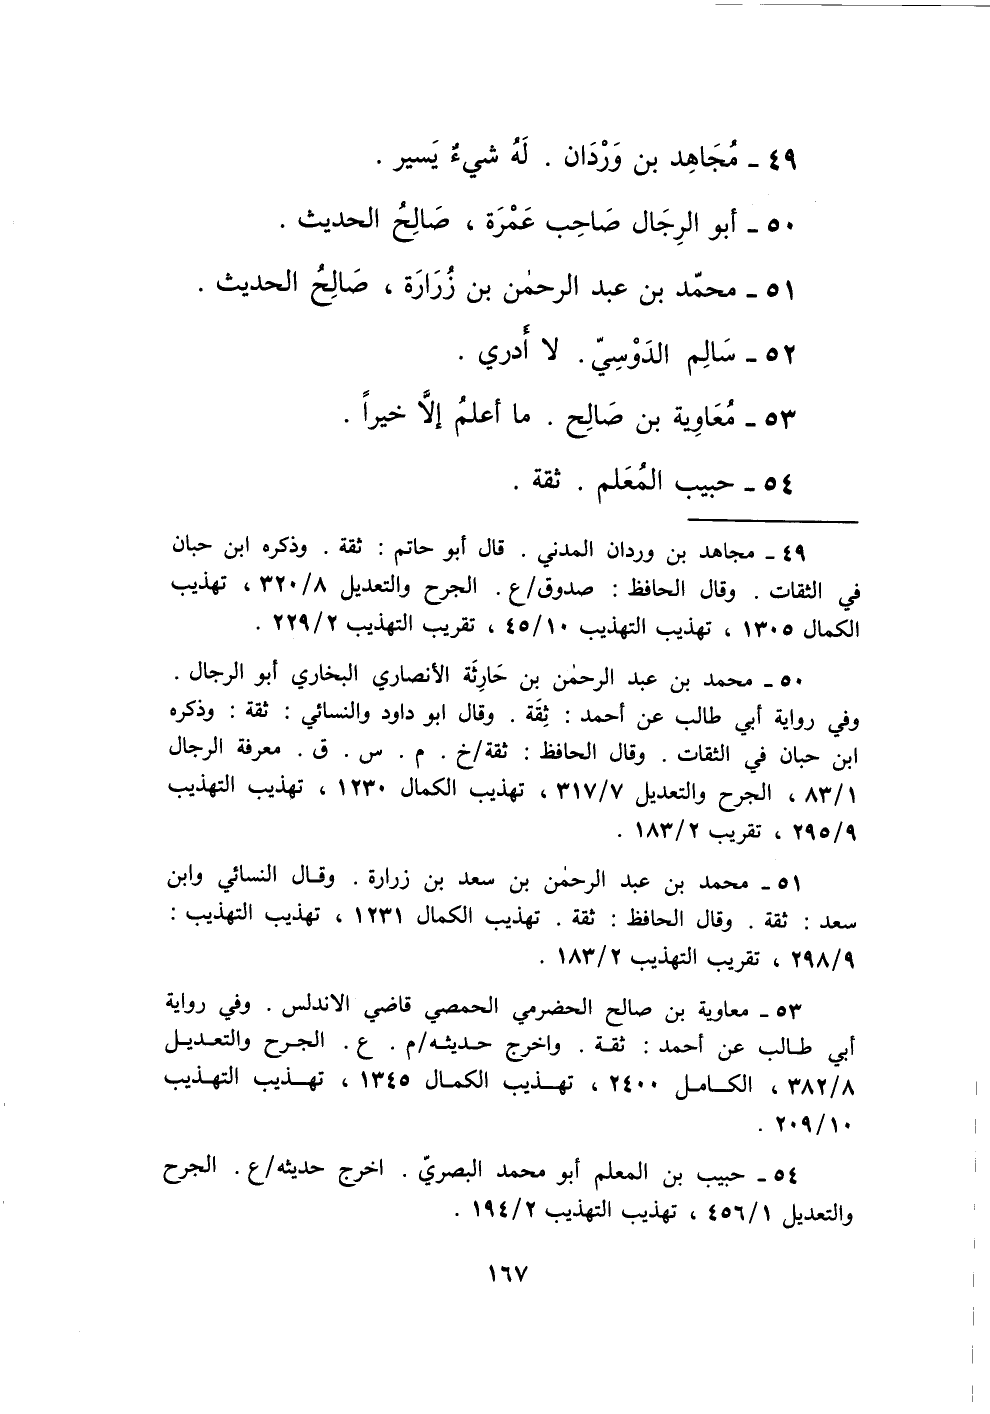 ٤٩ ـ مُجَاهِد بن وَرْدَان . لَهُ شيءٌ يَسير .
٥٠ ـ أبو الرِجَال صَاحِب عَمْرَة ، صَالِحُ الحديث .
٥١ ـ محمّد بن عبد الرحمٰن بن زُرَارَة ، صَالِحُ الحديث .
٥٢ ـ سَالِم الدَوْسِيّ . لا أَدري .
٥٣ ـ مُعَاوِية بن صَالِح . ما أعلمُ إلاَّ خيراً .
٥٤ ـ حبيب المُعَلم . ثقة .
٤٩ ـ مجاهد بن وردان المدني . قال أبو حاتم : ثقة . وذكره ابن حبان
في الثقات . وقال الحافظ : صدوق/ع . الجرح والتعديل ٣٢٠/٨ ، تهذيب
الكمال ١٣٠٥ ، تهذيب التهذيب ٤٥/١٠ ، تقريب التهذيب ٢٢٩/٢ .
٥٠ ـ محمد بن عبد الرحمٰن بن حَارِثَة الأنصاري البخاري أبو الرجال .
وفي رواية أبي طالب عن أحمد : ثِقَة . وقال ابو داود والنسائي : ثقة : وذكره
ابن حبان في الثقات . وقال الحافظ : ثقة/خ . م . س . ق . معرفة الرجال
٨٣/١ ، الجرح والتعديل ٣١٧/٧ ، تهذيب الكمال ١٢٣٠ ، تهذيب التهذيب
٢٩٥/٩ ، تقريب ١٨٣/٢ .
٥١ ـ محمد بن عبد الرحمٰن بن سعد بن زرارة . وقال النسائي وابن
سعد : ثقة . وقال الحافظ : ثقة . تهذيب الكمال ١٢٣١ ، تهذيب التهذيب :
٢٩٨/٩ ، تقريب التهذيب ١٨٣/٢ .
٥٣ ـ معاوية بن صالح الحضرمي الحمصي قاضي الاندلس . وفي رواية
أبي طالب عن أحمد : ثقة . واخرج حديثه/م . ع . الجرح والتعديل
٣٨٢/٨ ، الكامل ٢٤٠٠ ، تهذيب الكمال ١٣٤٥ ، تهذيب التهذيب
٢٠٩/١٠ .
٥٤ ـ حبيب بن المعلم أبو محمد البصريّ . اخرج حديثه/ع . الجرح
والتعديل ٤٥٦/١ ، تهذيب التهذيب ١٩٤/٢ .
١٦٧